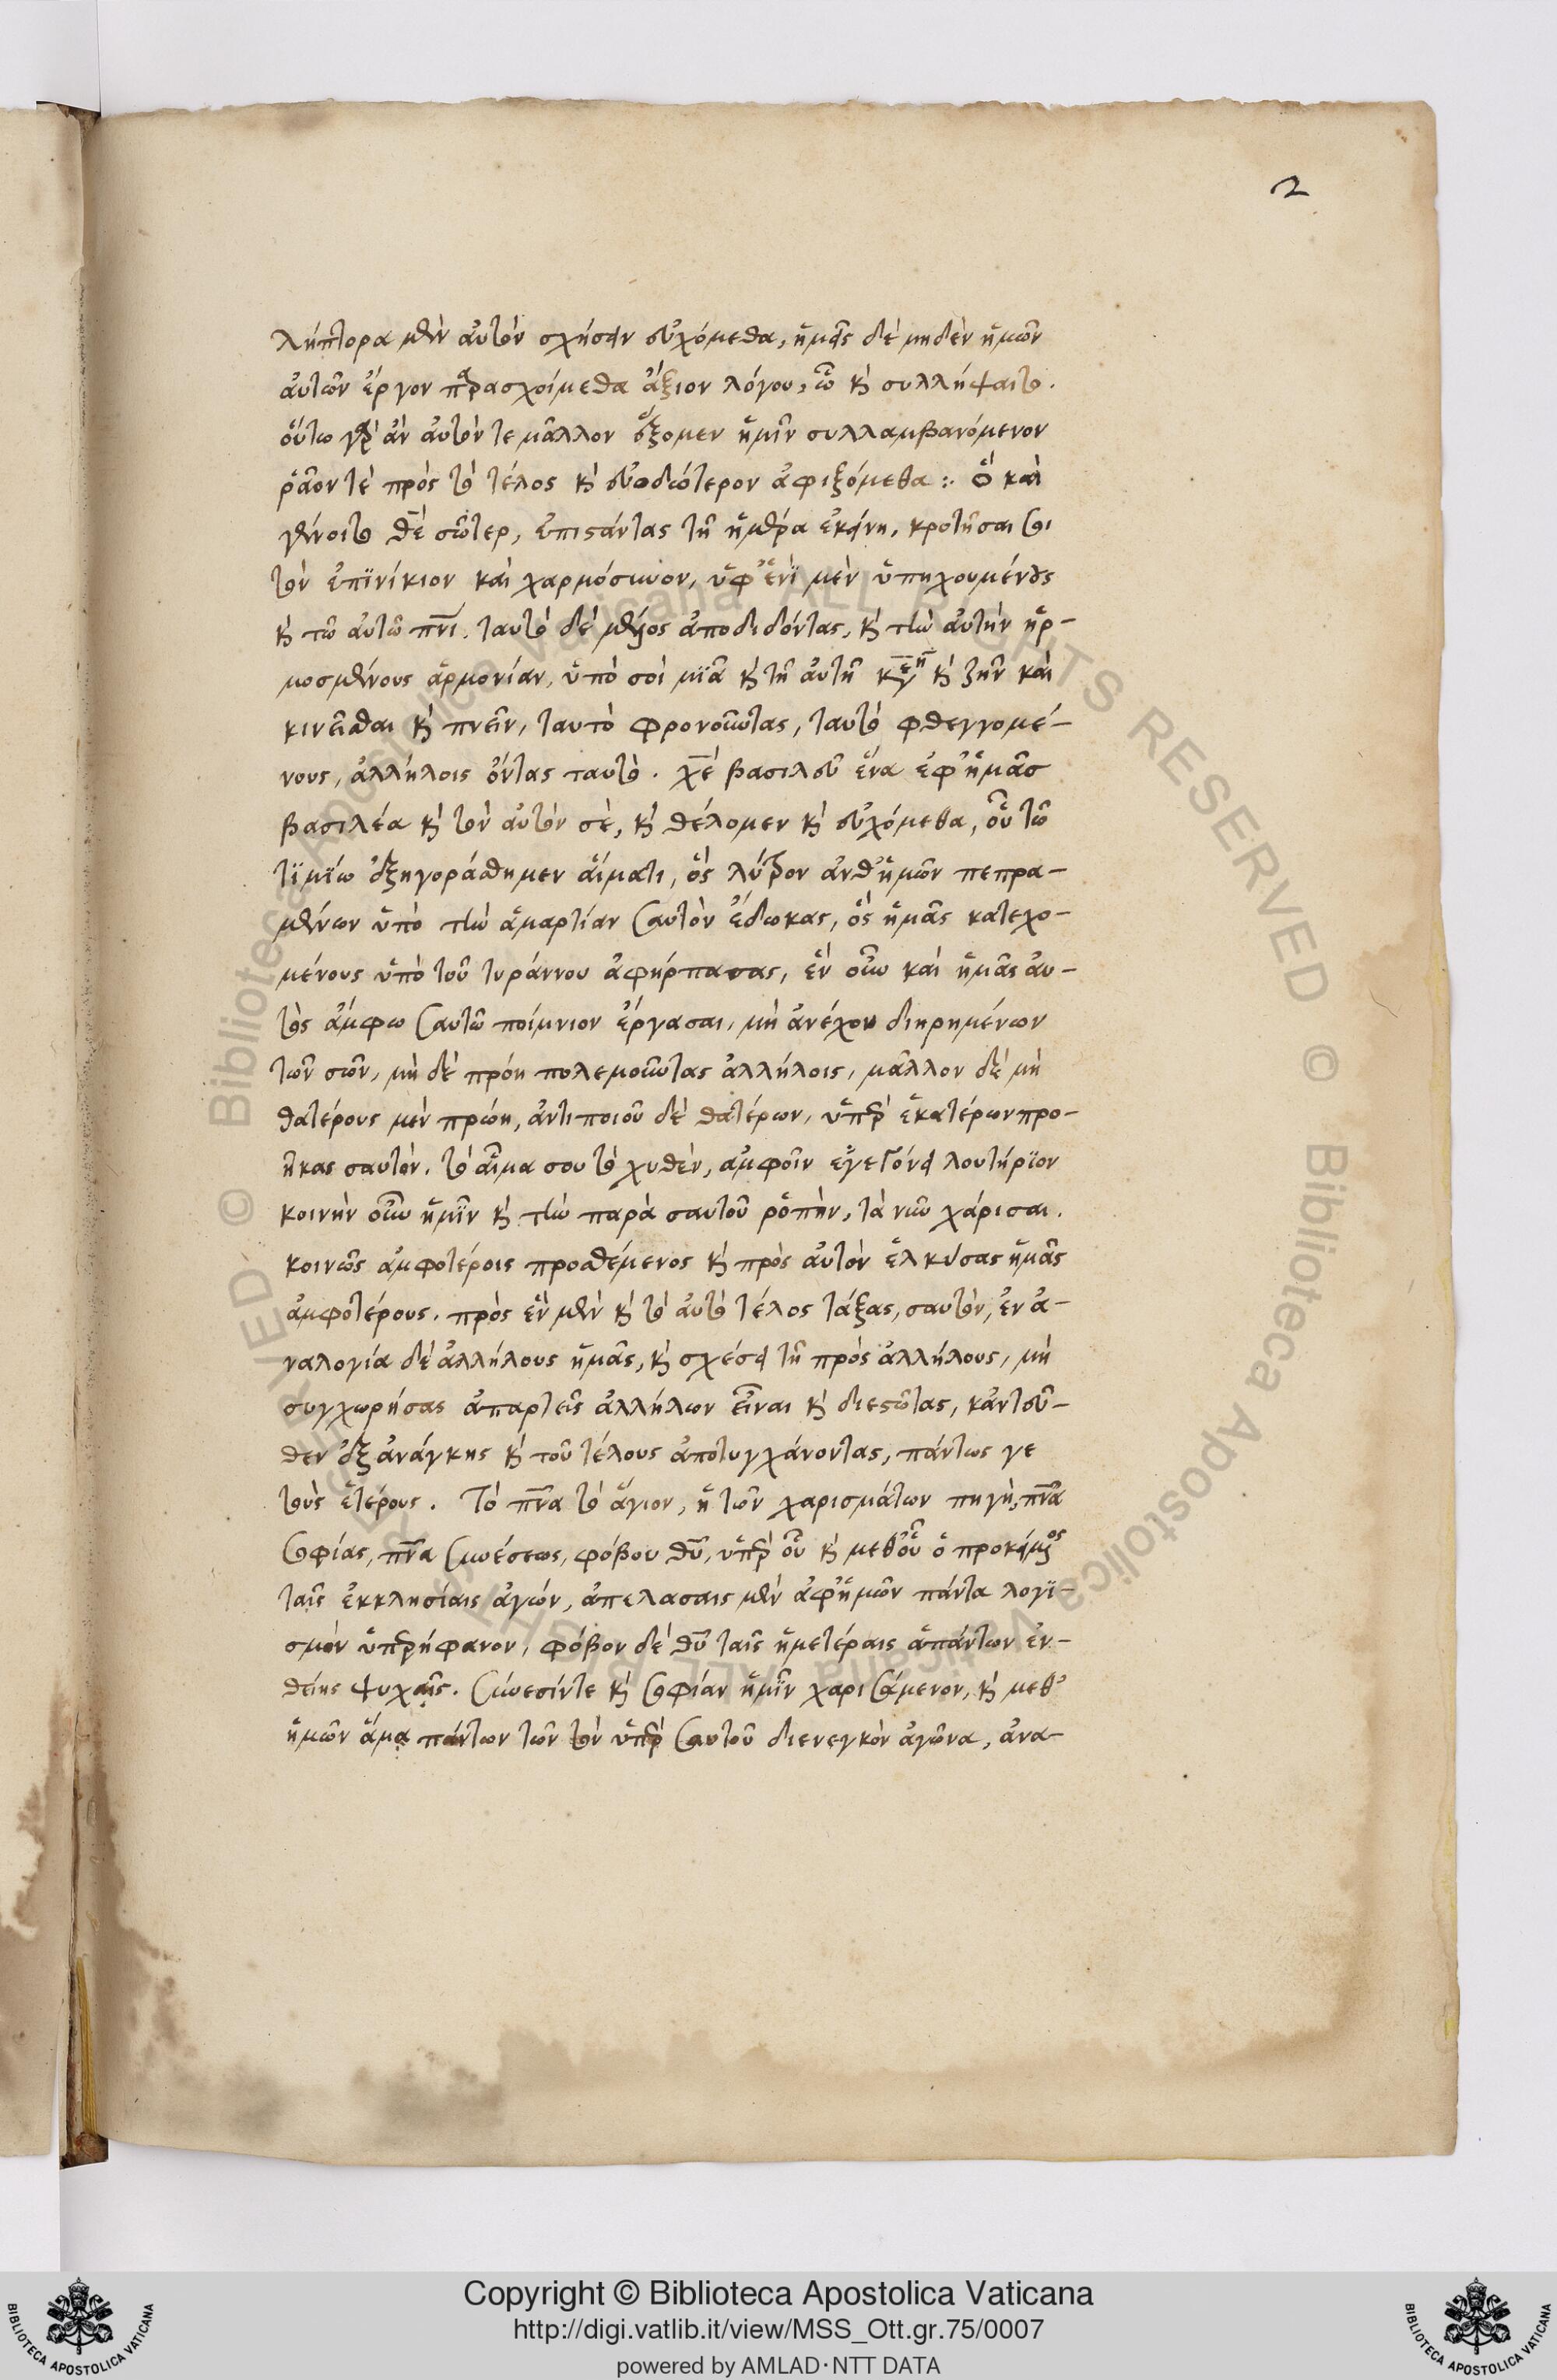 2
λήπτορα μὲν αὐτὸν σχήσειν εὐχόμεθα, ἡμεῖς δὲ μηδὲν ἡμῶν
αὐτῶν ἔργον παρασχοίμεθα ἄξιον λόγου, ᾧ κ̀ συλλήψαιτο.
οὕτω γὰρ ἂν αὐτόν τε μᾶλλον ἕξομεν ἡμῖν συλλαμβανόμενον
ῥᾷόν τε πρὸς τὸ τέλος κ̀ εὐοδώτερον ἀφιξόμεθα :· Ὃ καὶ
γένοιτο θ̅ε̅ σῶτερ, ἐπιστάντας τῆ ἡμέρα ἐκείνη, κροτῆσαι σοι
τὸν ἐπϊνίκιον καὶ χαρμόσυνον, ὑφ' ἑνὶ μὲν ὑπηχουμένους
κ̀ τῶ αὐτῶ π̅ν̅ι̅. ταυτὸ δὲ μέλος ἀποδιδόντας, κ̀ τὴν αὐτὴν ἡρ-
μοσμένους ἁρμονίαν, ὑπὸ σοὶ μϊᾶ κ̀ τῆ αὐτῆ κ̀ ζῆν καὶ
κινεῖσθαι κ̀ πνεῖν, ταυτὸ φρονοῦντας, ταυτὸ φθεγγομέ-
νους, ἀλλήλοις ὄντας ταυτὸ. χ̅ε̅ βασιλεῦ ἕνα ἐφ' ἡμᾶσ
βασιλέα κ̀ τὸν αὐτὸν σὲ, κ̀ θέλομεν κ̀ εὐχόμεθα, οὗ τῶ
τϊμϊω ἐξηγοράσθημεν αἵματι, ὃς λύτρον ἀνθ' ἡμῶν πεπρα-
μένων ὑπὸ τὴν ἁμαρτίαν σαυτὸν ἔδωκας, ὃς ἡμᾶς κατεχο-
μένους ὑπὸ τοῦ τυράννου ἀφήρπασας, ἓν οὖν καὶ ἡμᾶς αὐ-
τὸς ἄμφω σαυτῶ ποίμνιον ἔργασαι, μὴ ἀνέχου διηρημένων
τῶν σῶν, μὴ δὲ πρόη πολεμοῦντας ἀλλήλοις, μᾶλλον δὲ μὴ
θατέρους μὲν πρώη, ἀντιποιοῦ δὲ θατέρων, ὑπὲρ ἑκατέρων προ-
ῆκας σαυτὸν. τὸ αἷμα σου τὸ χυθὲν, ἀμφοῖν ἐγεγόνει λουτήρϊον
κοινὴν οὖν ἡμῖν κ̀ τὴν παρὰ σαυτοῦ ῥοπὴν, τὰ νῦν χάρισαι.
κοινῶς ἀμφοτέροις προσθέμενος κ̀ πρὸς αὐτὸν ἑλκύσας ἡμᾶς
ἀμφοτέρους. πρὸς ἓν μὲν κ̀ τὸ αὐτὸ τέλος τάξας, σαυτὸν, ἐν ἀ-
ναλογία δὲ ἀλλήλους ἡμᾶς, κ̀ σχέσει τῆ πρὸς ἀλλήλους, μὴ
συγχωρήσας ἀπαρτεῖς ἀλλήλων εἶναι κ̀ διεστῶτας, κἀντεῦ-
θεν ἐξ ἀνάγκης κ̀ τοῦ τέλους ἀποτυγχάνοντας, πάντως γε
τοὺς ἑτέρους. Τὸ π̅ν̅α̅ τὸ ἅγιον, ἡ τῶν χαρισμάτων πηγὴ, π̅ν̅α̅
σοφίας, π̅ν̅α̅ συνέσεως, φόβου θ̅υ̅, ὑπὲρ οὗ κ̀ μεθ' οὗ ὁ προκείμενος
ταῖς ἐκκλησίαις ἀγών, ἀπελασαις μὲν ἀφ' ἡμῶν πάντα λογϊ-
σμὸν ὑπερήφανον, φόβον δὲ θ̅υ̅ ταῖς ἡμετέραις ἁπάντων ἐν-
θείης ψυχαῖς. σύνεσίν τε κ̀ σοφίαν ἡμῖν χαρισάμενον, κ̀ μεθ'
ἡμῶν ἅμα πάντων τῶν τὸν ὑπὲρ σαυτοῦ διενεγκὸν ἀγῶνα, ἀνα-
Copyright © Biblioteca Apostolica Vaticana
http://digi.vatlib.it/view/MSS_Ott.gr.75/0007
powered by AMLAD·NTT DATA